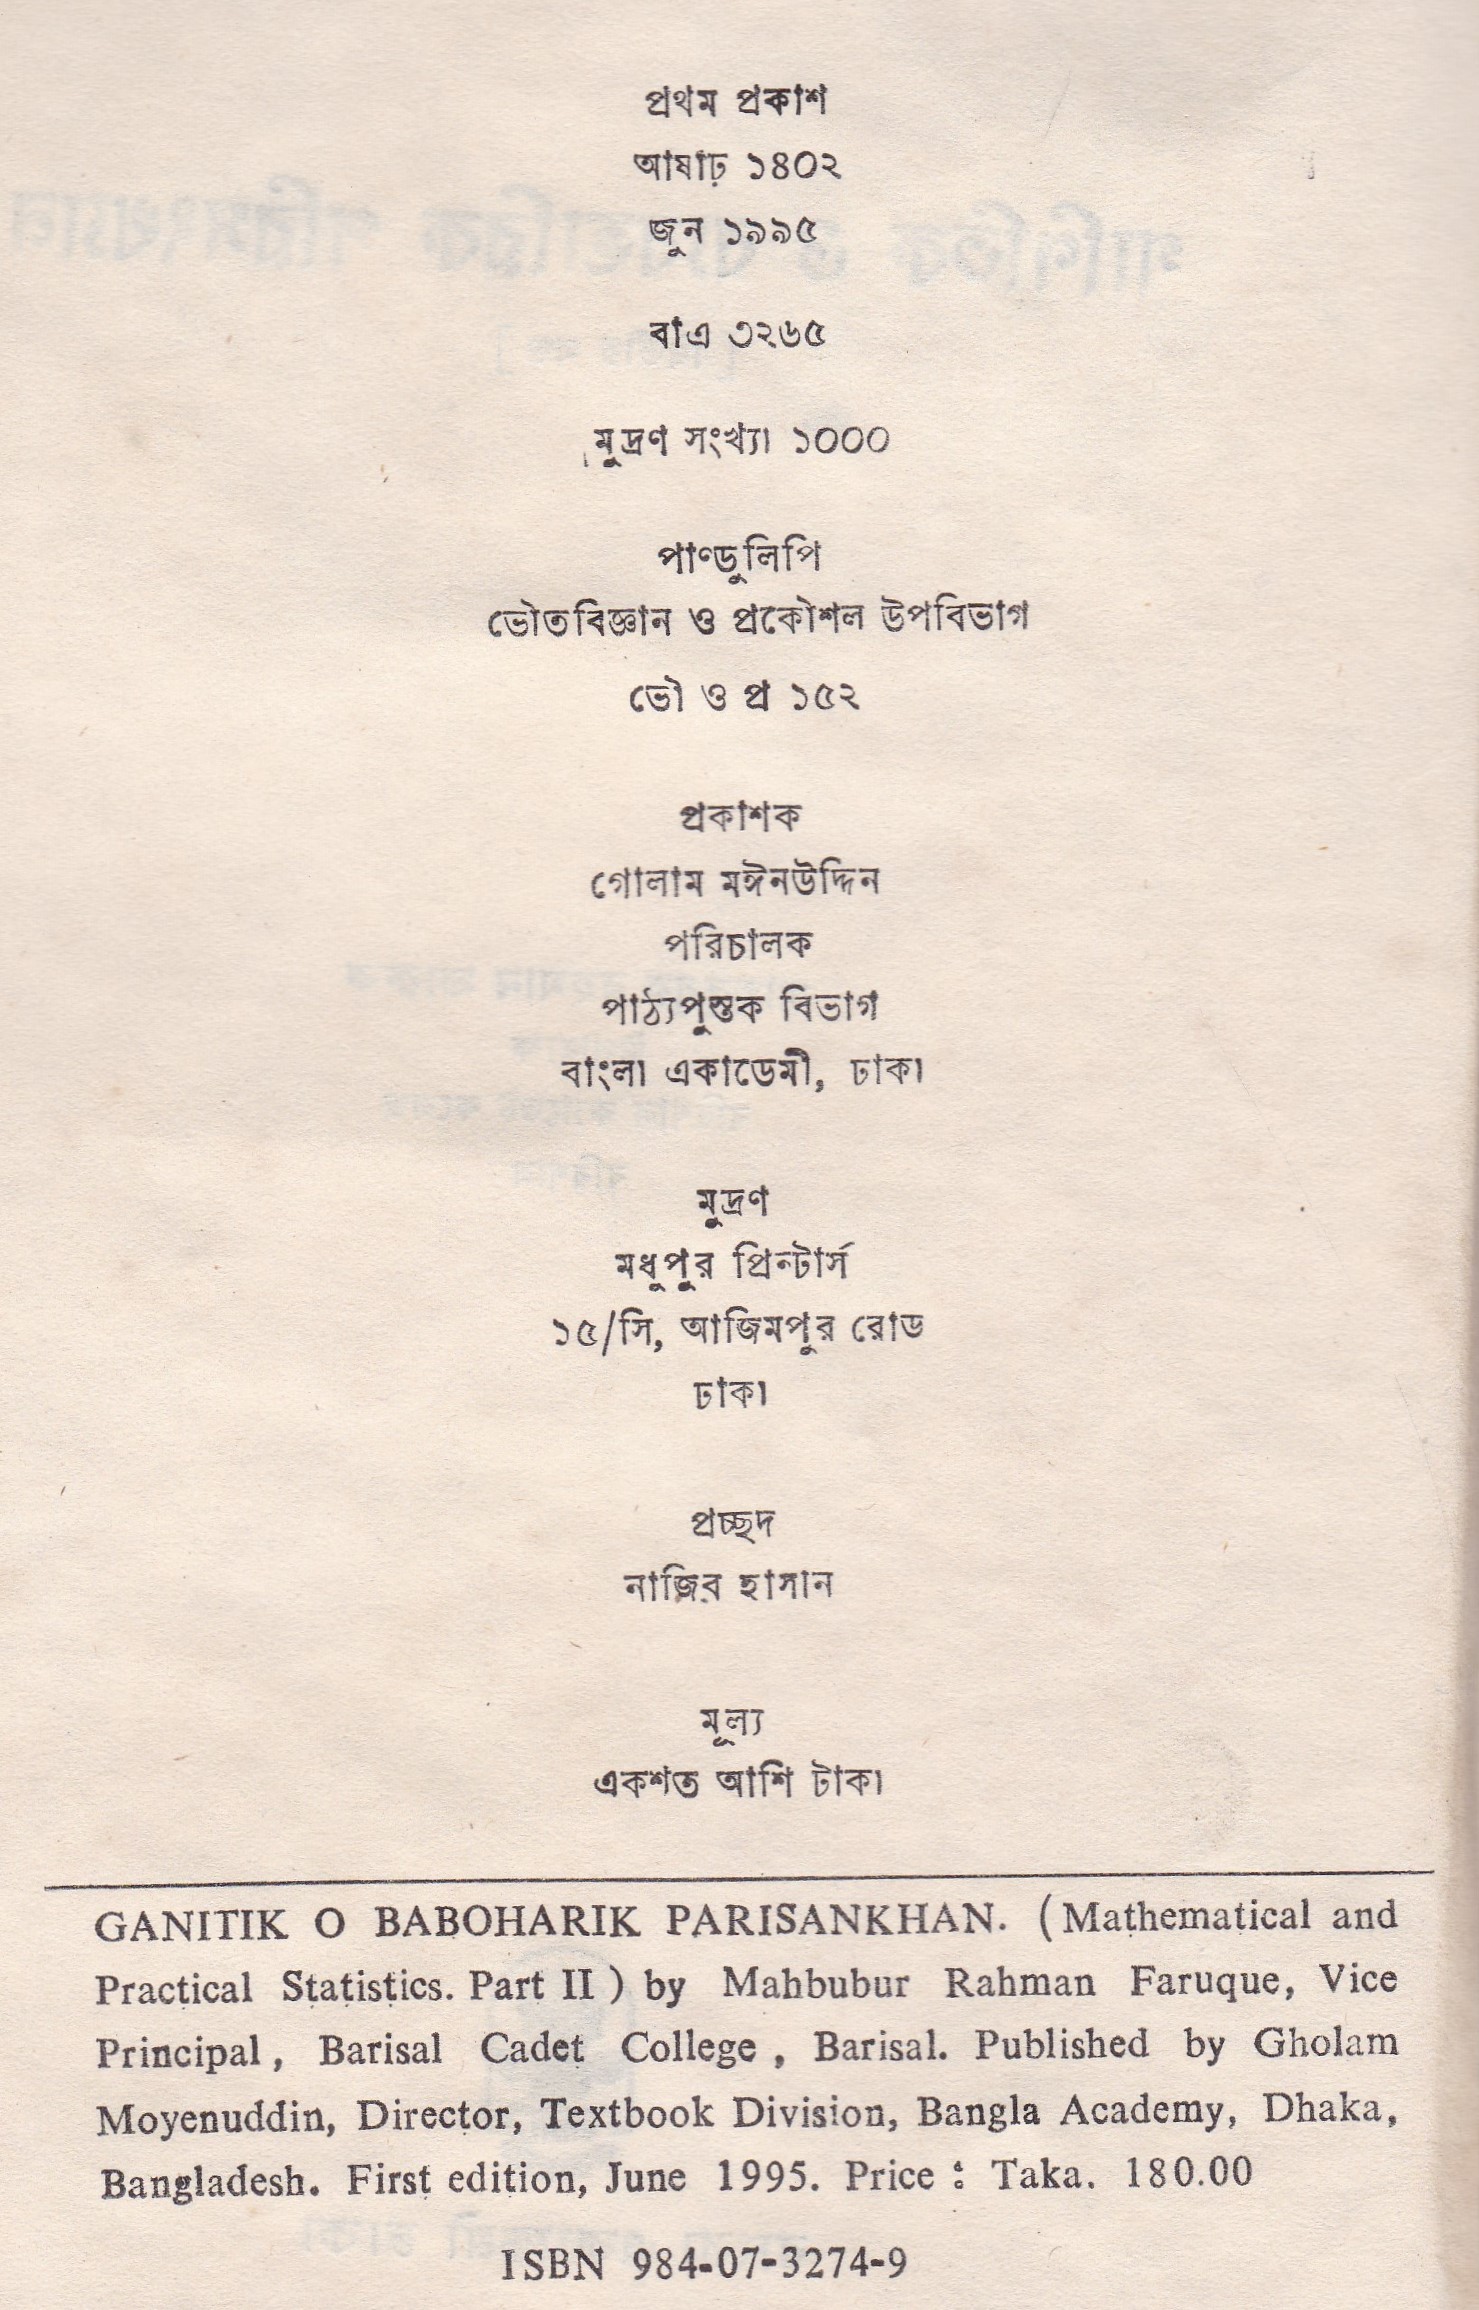 প্রথম প্রকাশ
আষাঢ় ১৪০২
জুন ১৯৯৫
বাএ ৩২৬৫
মুদ্রণ সংখ্যা ১০০০
পাণ্ডুলিপি
ভৌতবিজ্ঞান ও প্রকৌশল উপবিভাগ
ভৌ ও প্র ১৫২
প্রকাশক
গোলাম মঈনউদ্দিন
পরিচালক
পাঠ্যপুস্তক বিভাগ
বাংলা একাডেমী, ঢাকা
মুদ্রণ
মধুপুর প্রিন্টার্স
১৫/সি, আজিমপুর রোড
ঢাকা
প্রচ্ছদ
নাজিব হাসান
মূল্য
একশত আশি টাকা
GANITIK O BABOHARIK PARISANKHAN. (Mathematical and
Practical Statistics. Part II ) by Mahbubur Rahman Faruque, Vice
Principal, Barisal Cadet College, Barisal. Published by Gholam
Moyenuddin, Director, Textbook Division, Bangla Academy, Dhaka,
Bangladesh. First edition, June 1995. Price : Taka. 180.00
ISBN 984-07-3274-9